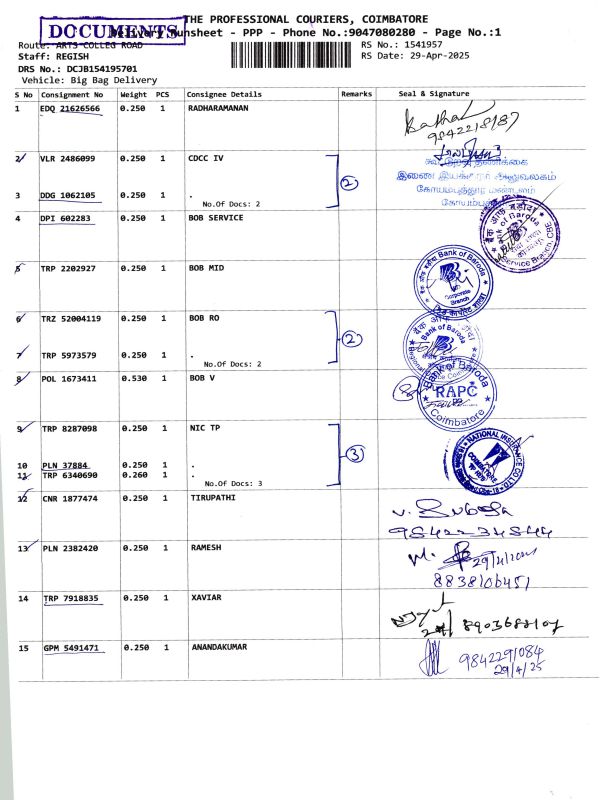 THE PROFESSIONAL COURIERS, COIMBATORE
DOCUMENTS
Delivery Runsheet - PPP - Phone No.:9047080280 - Page No.:1
Route: ARTS COLLEG ROAD
RS No.: 1541957
Staff: REGISH
RS Date: 29-Apr-2025
DRS No.: DCJB154195701
Vehicle: Big Bag Delivery
S No Consignment No Weight PCS Consignee Details Remarks Seal & Signature
1 EDQ 21626566 0.250 1 RADHARAMANAN
9842218187
2 VLR 2486099 0.250 1 CDCC IV
3 DDG 1062105 0.250 1 .
No.Of Docs: 2
(2)
4 DPI 602283 0.250 1 BOB SERVICE
Bank of Baroda
Service Branch, CBE
5 TRP 2202927 0.250 1 BOB MID
Bank of Baroda
Corporate Branch
6 TRZ 52004119 0.250 1 BOB RO
7 TRP 5973579 0.250 1 .
No.Of Docs: 2
(2)
Bank of Baroda
8 POL 1673411 0.530 1 BOB V
Bank of Baroda
RAPC
Coimbatore
9 TRP 8287098 0.250 1 NIC TP
10 PLN 37884 0.250 1 .
11 TRP 6340690 0.260 1 .
No.Of Docs: 3
(3)
NATIONAL INSURANCE CO LTD
COIMBATORE
12 CNR 1877474 0.250 1 TIRUPATHI
9842234844
13 PLN 2382420 0.250 1 RAMESH
8838106451
14 TRP 7918835 0.250 1 XAVIAR
8903688107
15 GPM 5491471 0.250 1 ANANDAKUMAR
9842291084
29/4/25